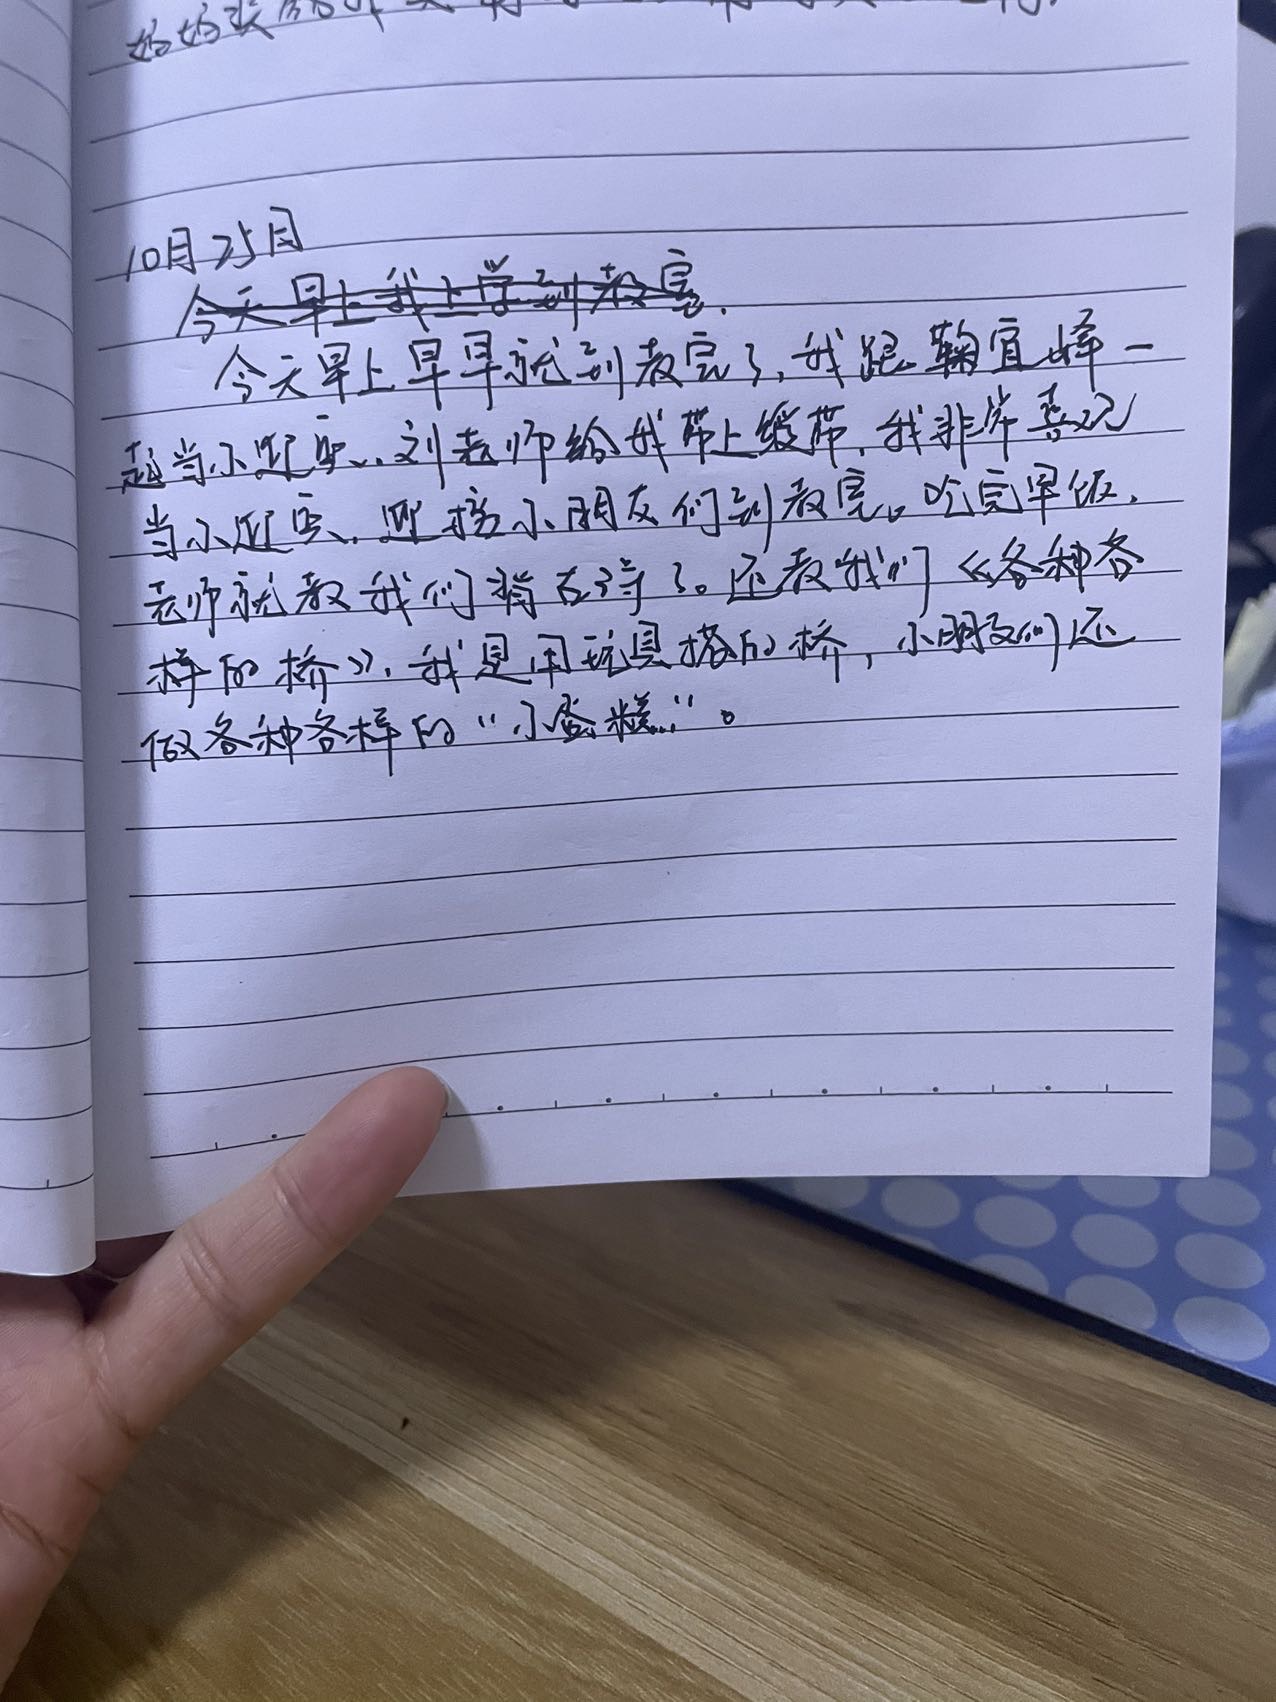 妈妈
10月25日
今天早上我上学到教室.
今天早上早早就到教室了,我跟鞠宜烨一
起当小迎宾,刘老师给我带上绶带,我非常喜欢
当小迎宾,迎接小朋友们到教室。吃完早饭,
老师就教我们背古诗了。还教我们《各种各
样的桥》,我是用玩具搭的桥,小朋友们还
做各种各样的“小蛋糕”。